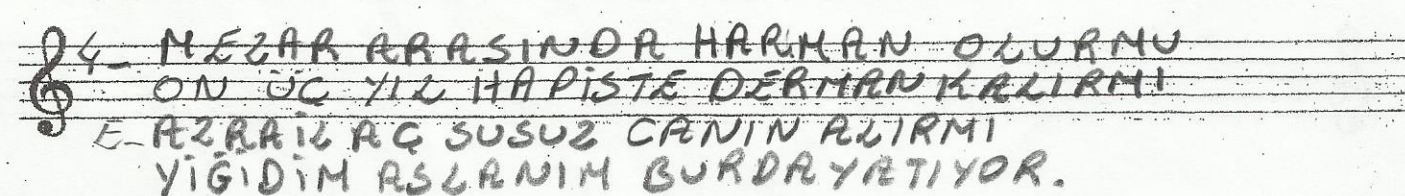 4- MEZAR ARASINDA HARMAN OLURMU
ON ÜÇ YIL HAPİSTE DERMAN KALIRMI
E- AZRAİL AÇ SUSUZ CANIN ALIRMI
YİĞİDİM ASLANIM BURDA YATIYOR.